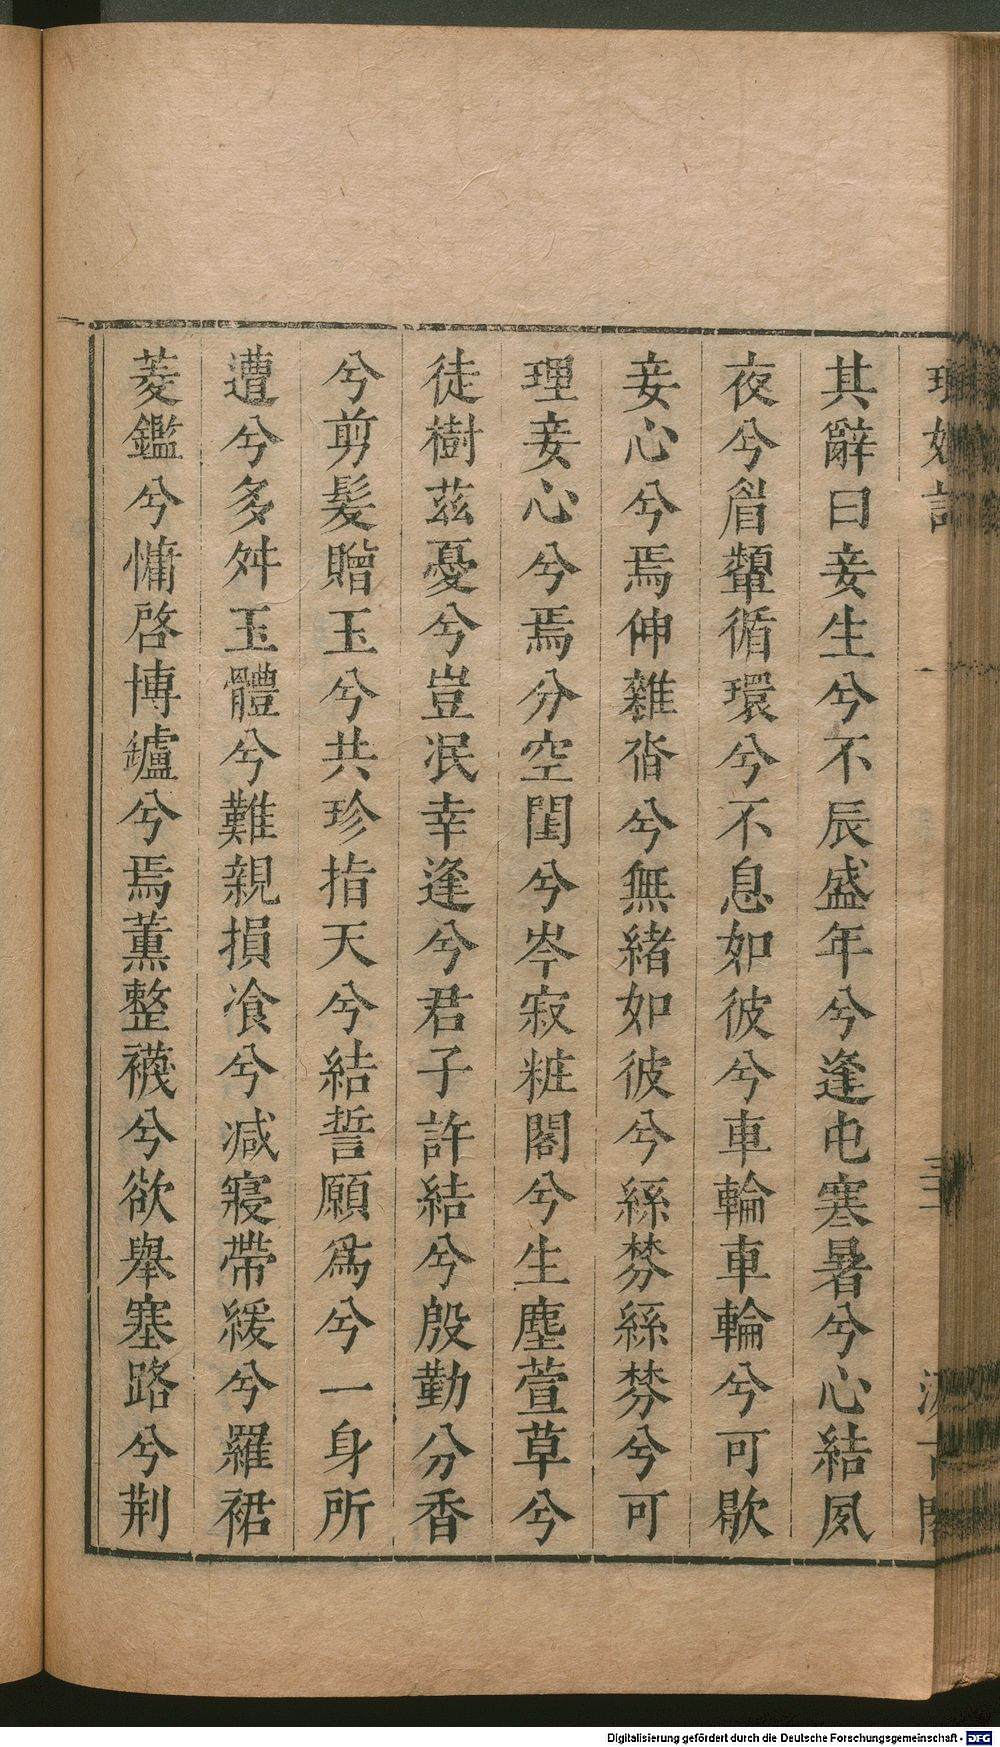 其辭曰妾生兮不辰盛年兮逢屯寒暑兮心結夙
夜兮眉顰循環兮不息如彼兮車輪車輪兮可歇
妾心兮焉伸雜沓兮無緒如彼兮絲棼絲棼兮可
理妾心兮焉分空閨兮岑寂粧閣兮生塵萱草兮
徒樹茲憂兮豈泯幸逢兮君子許結兮殷勤分香
兮剪髮贈玉兮共珍指天兮結誓願爲兮一身所
遭兮多舛玉體兮難親損飡兮減寢帶緩兮羅裙
菱鑑兮慵啓博鑪兮焉薰整襪兮欲舉塞路兮荆
Digitalisierung gefördert durch die Deutsche Forschungsgemeinschaft - DFG